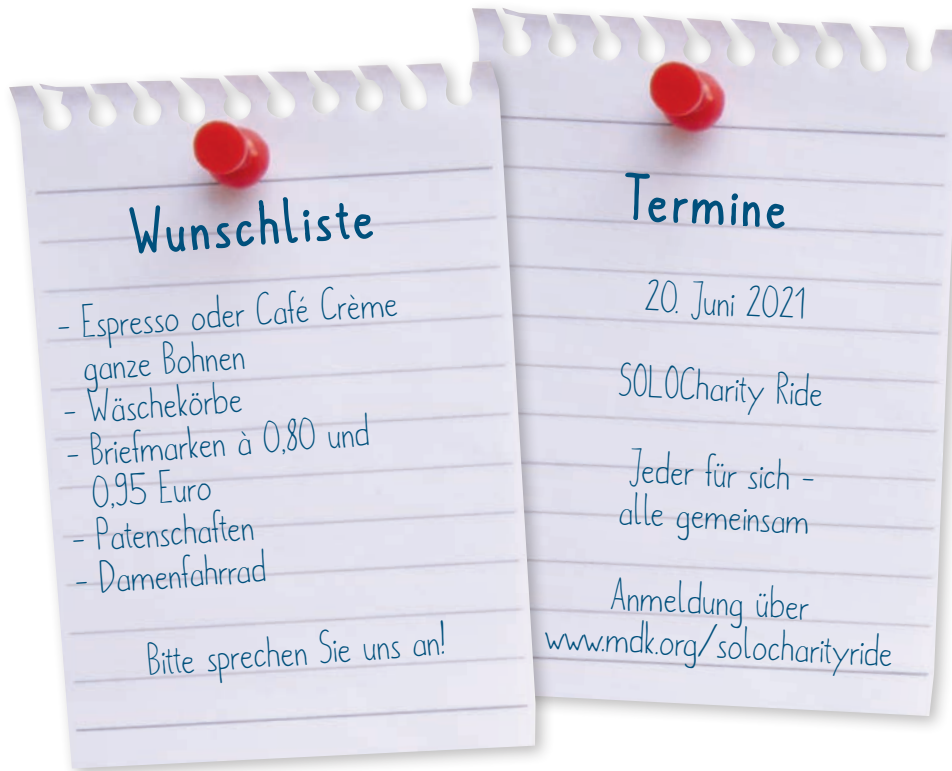 Wunschliste
- Espresso oder Café Crème
ganze Bohnen
- Wäschekörbe
- Briefmarken à 0,80 und
0,95 Euro
- Patenschaften
- Damenfahrrad
Bitte sprechen Sie uns an!
Termine
20. Juni 2021
SOLOCharity Ride
Jeder für sich -
alle gemeinsam
Anmeldung über
www.mdk.org/solocharityride